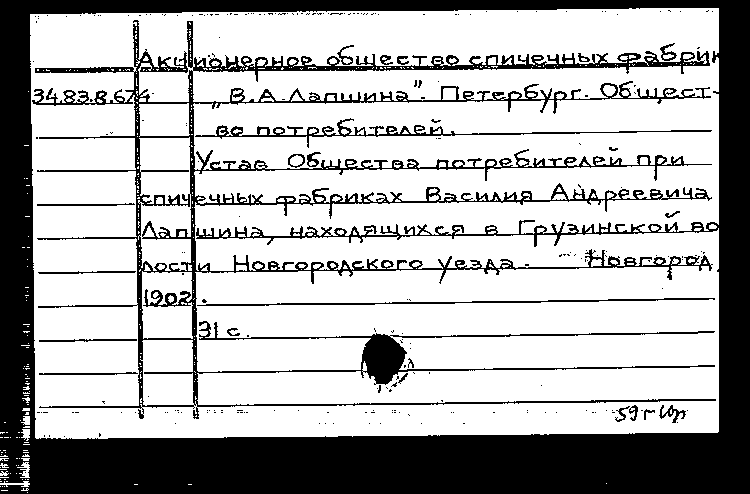 Акционерное общество спичечных фабрик
34.83.8.674 „В.А.Лапшина". Петербург. Общест-
во потребителей.
Устав Общества потребителей при
спичечных фабриках Василия Андреевича
Лапшина, находящихся в Грузинской во
лости Новгородского уезда. - Новгород,
1902.
31 с.